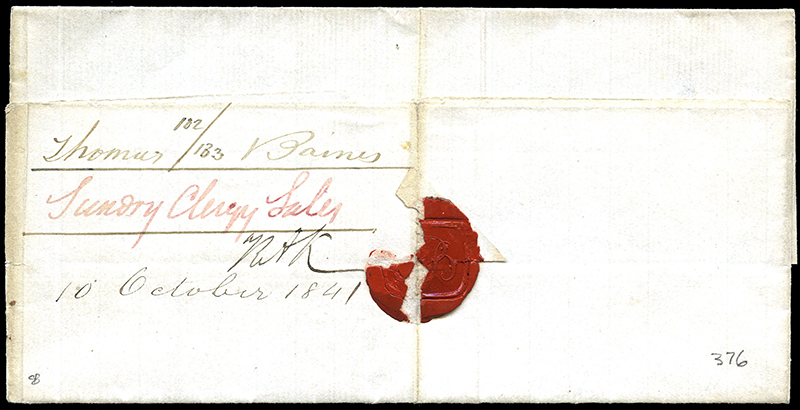 182/183
Thomas Baines
Sundry Clergy Sales
10 October 1841
376